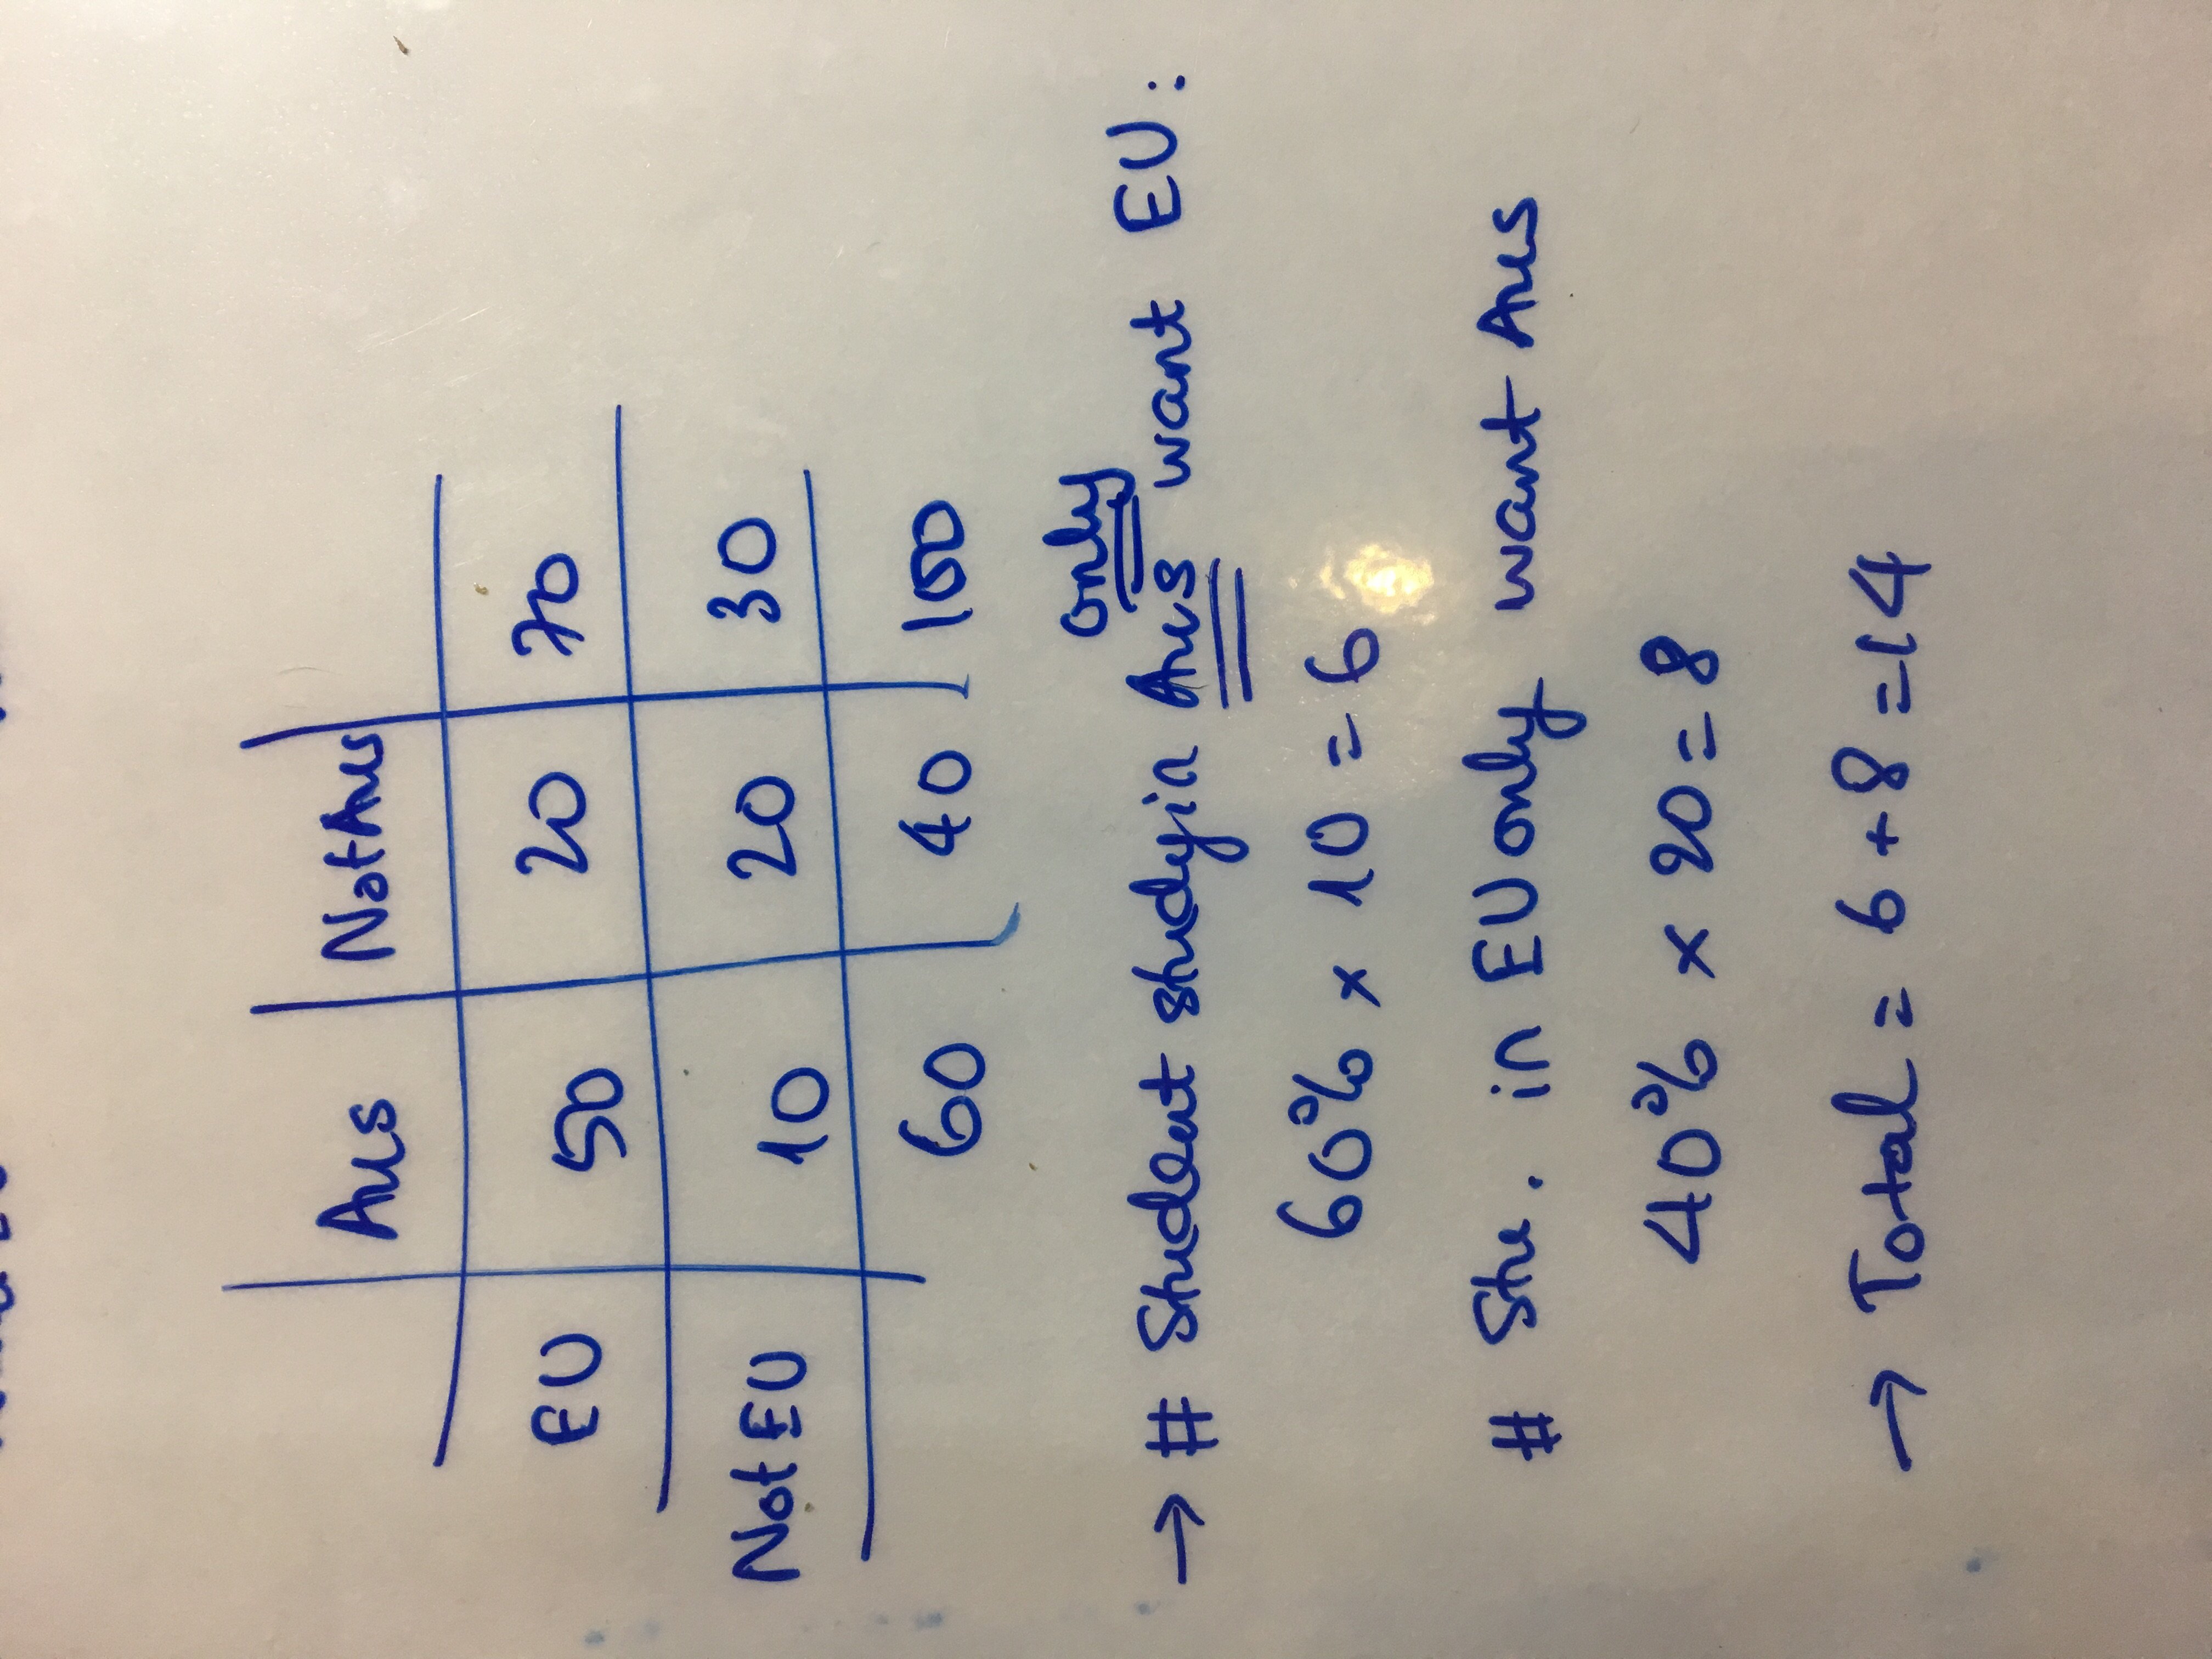 Aus NotAus
EU 50 20 70
Not EU 10 20 30
60 40 100
only
→ # Student studyin Aus want EU:
60% x 10 = 6
# Stu. in EU only want Aus
40% x 20 = 8
→ Total = 6 + 8 = 14